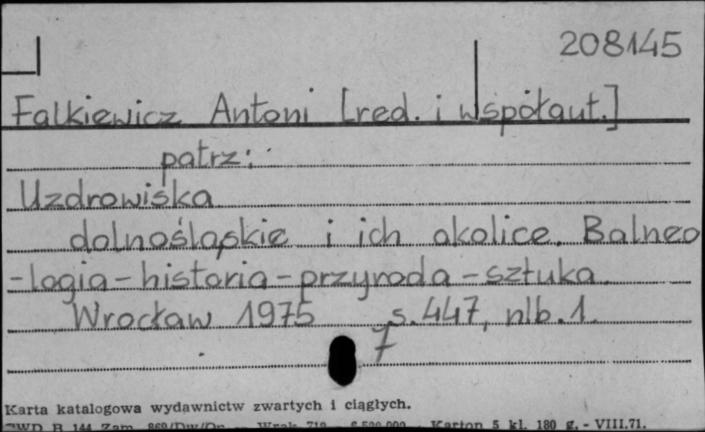 208145
Falkiewicz Antoni [red. i współaut.]
patrz:
Uzdrowiska
dolnośląskie i ich okolice. Balneo
-logia - historia - przyroda - sztuka.
Wrocław 1975 s. 447, nlb. 1.
7
Karta katalogowa wydawnictw zwartych i ciągłych.
Karton 5 kl. 180 g. - VIII.71.